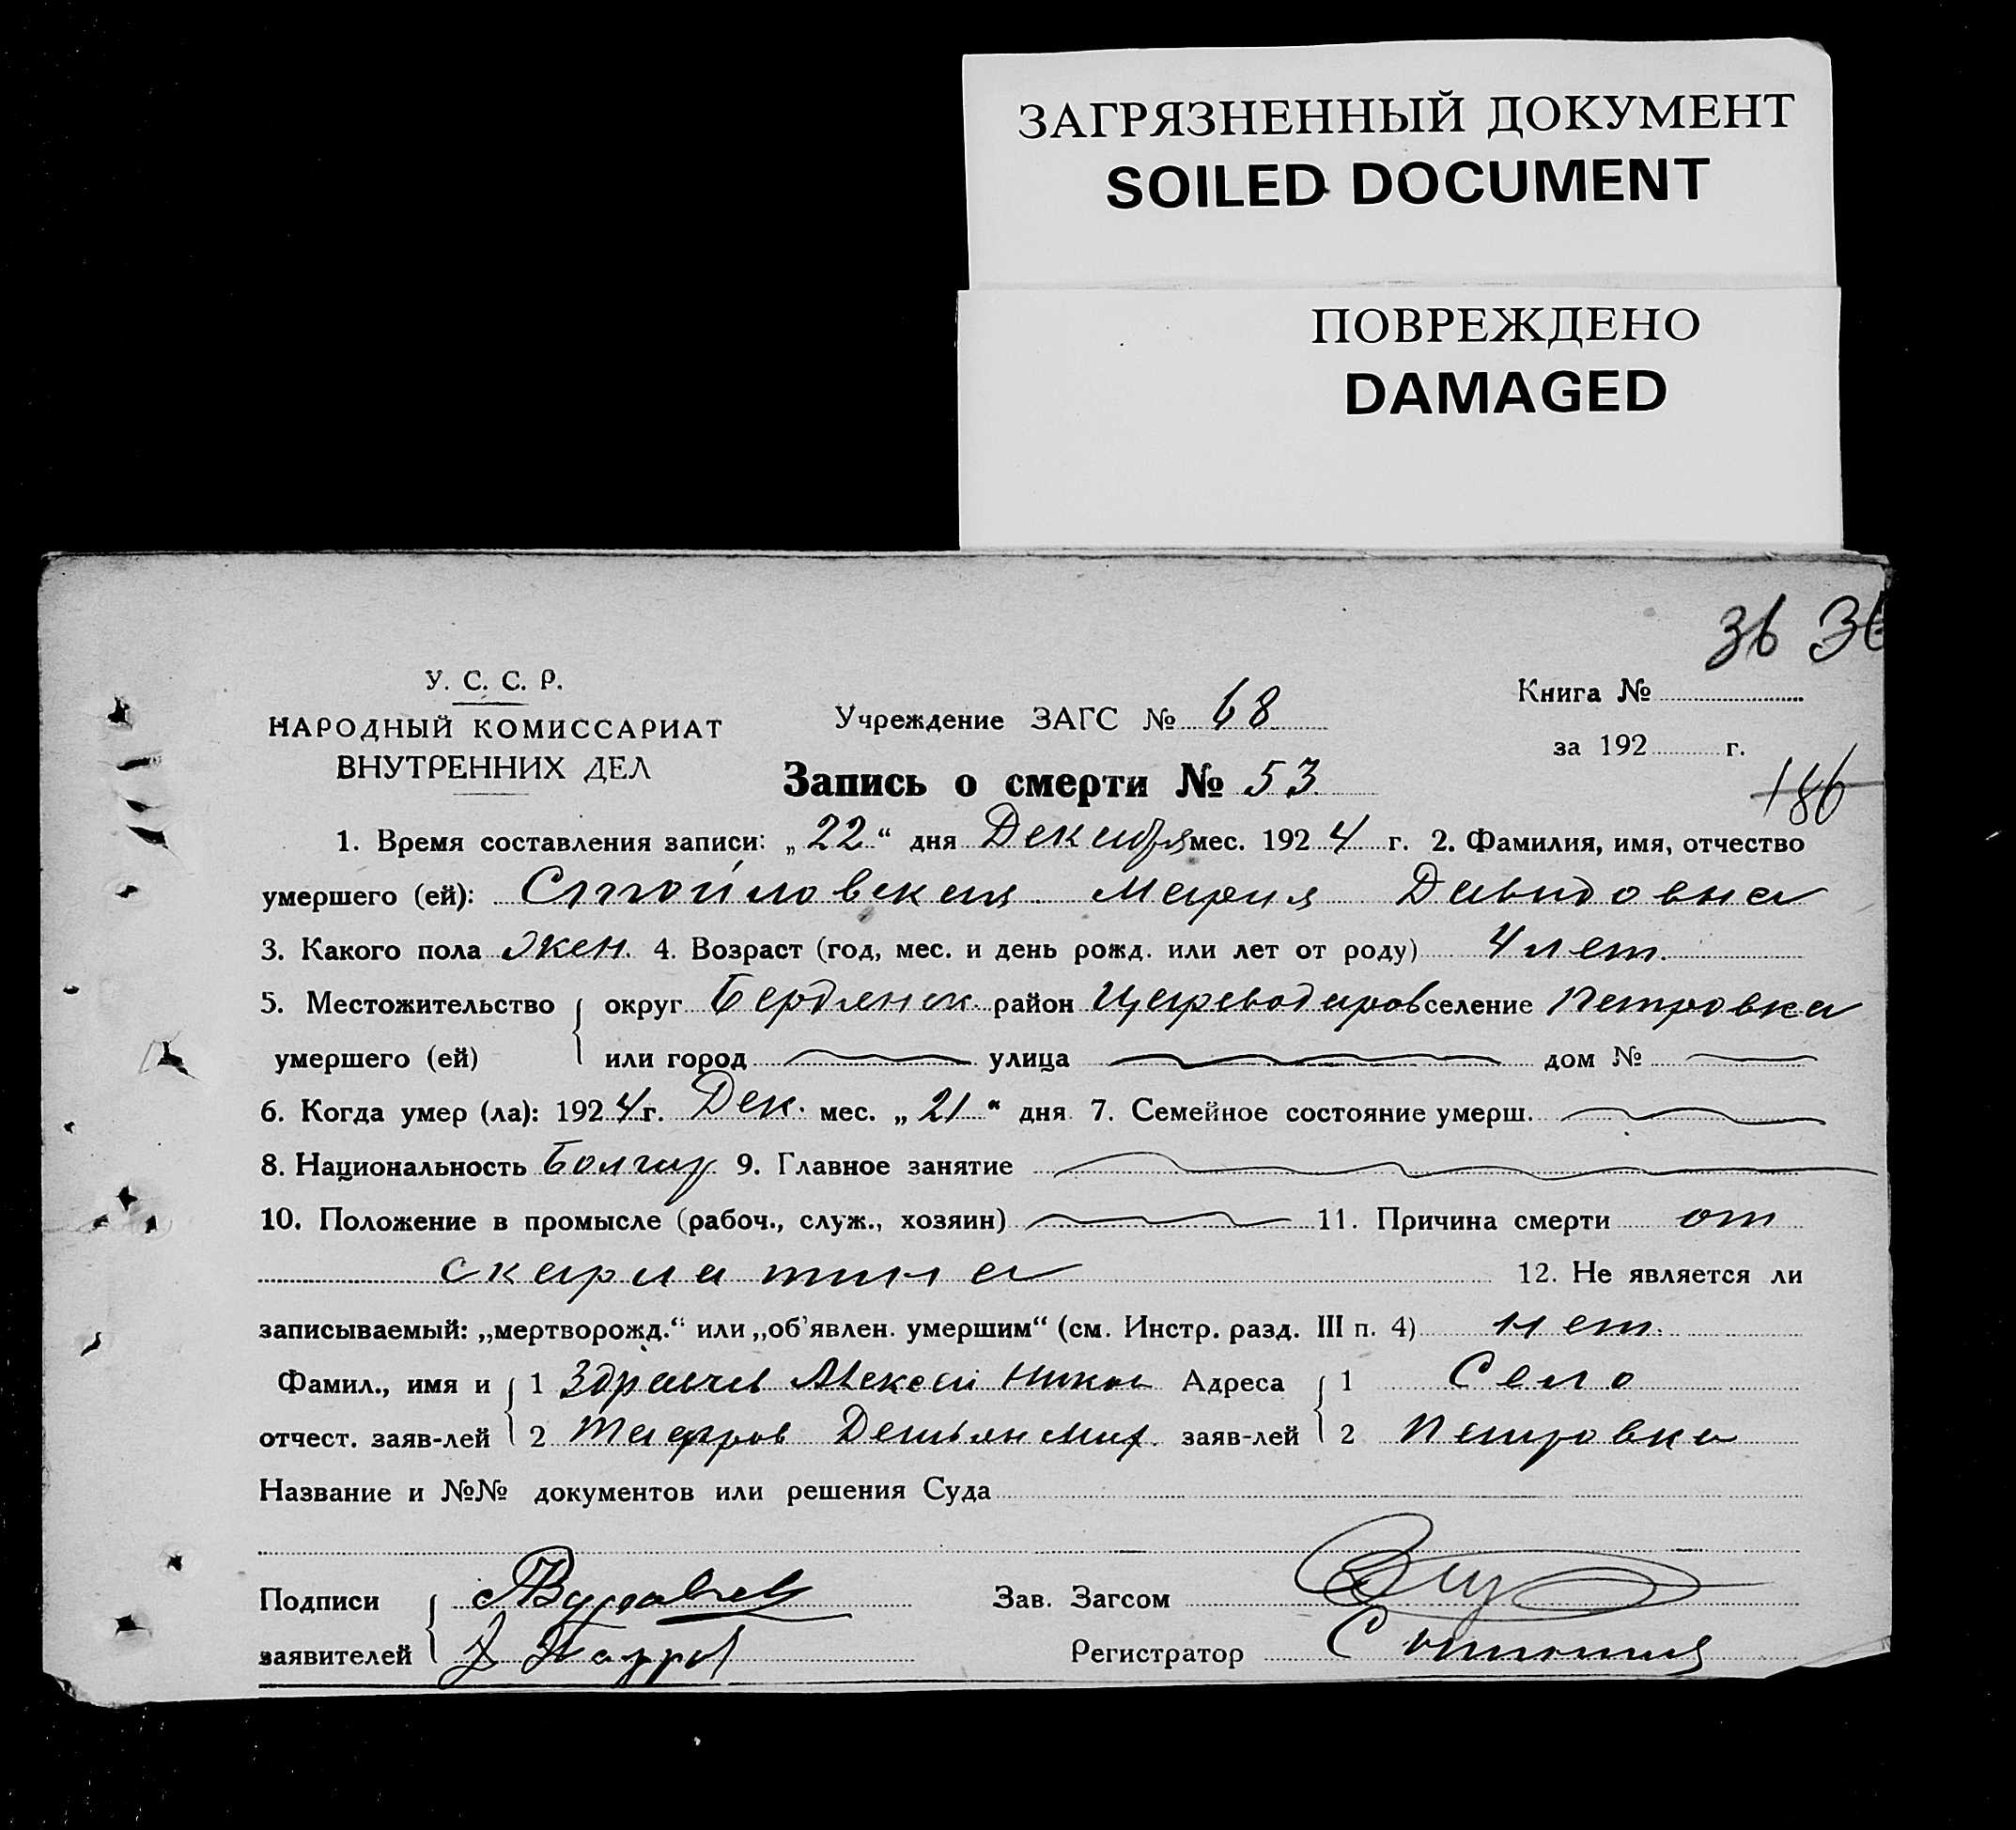 ЗАГРЯЗНЕННЫЙ ДОКУМЕНТ
SOILED DOCUMENT
ПОВРЕЖДЕНО
DAMAGED
36 36
У. С. С. Р.
НАРОДНЫЙ КОМИССАРИАТ
ВНУТРЕННИХ ДЕЛ
Учреждение ЗАГС № 68
Книга №
за 192 г.
186
Запись о смерти № 53
1. Время составления записи: „22“ дня Декабря мес. 1924 г. 2. Фамилия, имя, отчество
умершего (ей): Стойловская Мария Давидовна
3. Какого пола жен. 4. Возраст (год, мес. и день рожд. или лет от роду) 4 лет.
5. Местожительство { округ Бердянск. район Цареводаров селение Петровка
умершего (ей) или город улица дом №
6. Когда умер (ла): 1924 г. Дек. мес. „21“ дня 7. Семейное состояние умерш.
8. Национальность Болгар 9. Главное занятие
10. Положение в промысле (рабоч., служ., хозяин) 11. Причина смерти от
скарлатина
12. Не является ли
записываемый: „мертворожд.“ или „об'явлен. умершим“ (см. Инстр. разд. III п. 4) нет.
Фамил., имя и { 1 Здравчев Алексей Никол Адреса { 1 Село
отчест. заяв-лей 2 Демьян Мих. заяв-лей 2 Петровка
Название и №№ документов или решения Суда
Подписи { Зав. Загсом
заявителей Регистратор